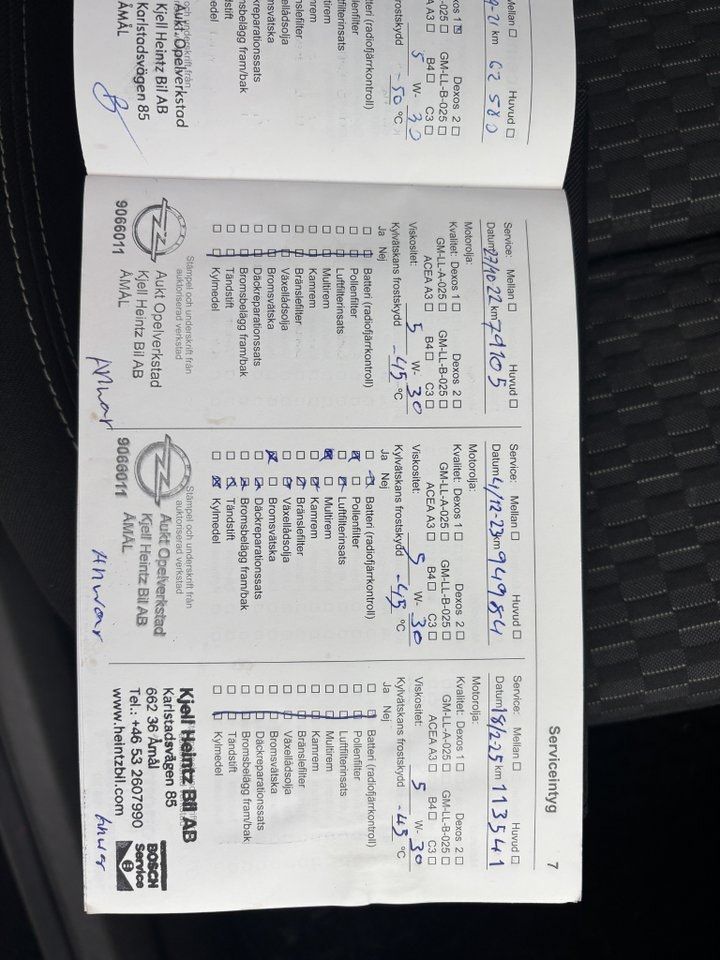 Mellan ☐ Huvud ☐
9-21 km 62 580
Dexos 2 ☐
-025 ☐ GM-LL-B-025 ☐
A3 ☐ B4 ☐ C3 ☐
5 W- 30
frostskydd -50 °C
Batteri (radiofjärrkontroll)
Pollenfilter
Luftfilterinsats
Multirem
Kamrem
Bränslefilter
Växellådsolja
Bromsvätska
Däckreparationssats
Bromsbelägg fram/bak
Aukt Opelverkstad
Kjell Heintz Bil AB
Karlstadsvägen 85
ÅMÅL
Serviceintyg
7
Service: Mellan ☐ Huvud ☐
Datum 27/10 22 km 79105
Motorolja:
Kvalitet: Dexos 1 ☐ Dexos 2 ☐
GM-LL-A-025 ☐ GM-LL-B-025 ☐
ACEA A3 ☐ B4 ☐ C3 ☐
Viskositet: 5 W- 30
Kylvätskans frostskydd -45 °C
Ja Nej
Batteri (radiofjärrkontroll)
Pollenfilter
Luftfilterinsats
Multirem
Kamrem
Bränslefilter
Växellådsolja
Bromsvätska
Däckreparationssats
Bromsbelägg fram/bak
Tändstift
Kylmedel
Stämpel och underskrift från
auktoriserad verkstad
Aukt Opelverkstad
Kjell Heintz Bil AB
9066011 ÅMÅL
Anwar
Service: Mellan ☐ Huvud ☐
Datum 4/12-23 km 94984
Motorolja:
Kvalitet: Dexos 1 ☐ Dexos 2 ☐
GM-LL-A-025 ☐ GM-LL-B-025 ☐
ACEA A3 ☐ B4 ☐ C3 ☐
Viskositet: 5 W- 30
Kylvätskans frostskydd -45 °C
Ja Nej
Batteri (radiofjärrkontroll)
Pollenfilter
Luftfilterinsats
Multirem
Kamrem
Bränslefilter
Växellådsolja
Bromsvätska
Däckreparationssats
Bromsbelägg fram/bak
Tändstift
Kylmedel
Stämpel och underskrift från
auktoriserad verkstad
Aukt Opelverkstad
Kjell Heintz Bil AB
9066011 ÅMÅL
Anwar
Service: Mellan ☐ Huvud ☐
Datum 18/2-25 km 113541
Motorolja:
Kvalitet: Dexos 1 ☐ Dexos 2 ☐
GM-LL-A-025 ☐ GM-LL-B-025 ☐
ACEA A3 ☐ B4 ☐ C3 ☐
Viskositet: 5 W- 30
Kylvätskans frostskydd -45 °C
Ja Nej
Batteri (radiofjärrkontroll)
Pollenfilter
Luftfilterinsats
Multirem
Kamrem
Bränslefilter
Växellådsolja
Bromsvätska
Däckreparationssats
Bromsbelägg fram/bak
Tändstift
Kylmedel
Kjell Heintz Bil AB
Karlstadsvägen 85
662 36 Åmål
Tel.: +46 53 2607990
www.heintzbil.com
BOSCH
Service
Anwar